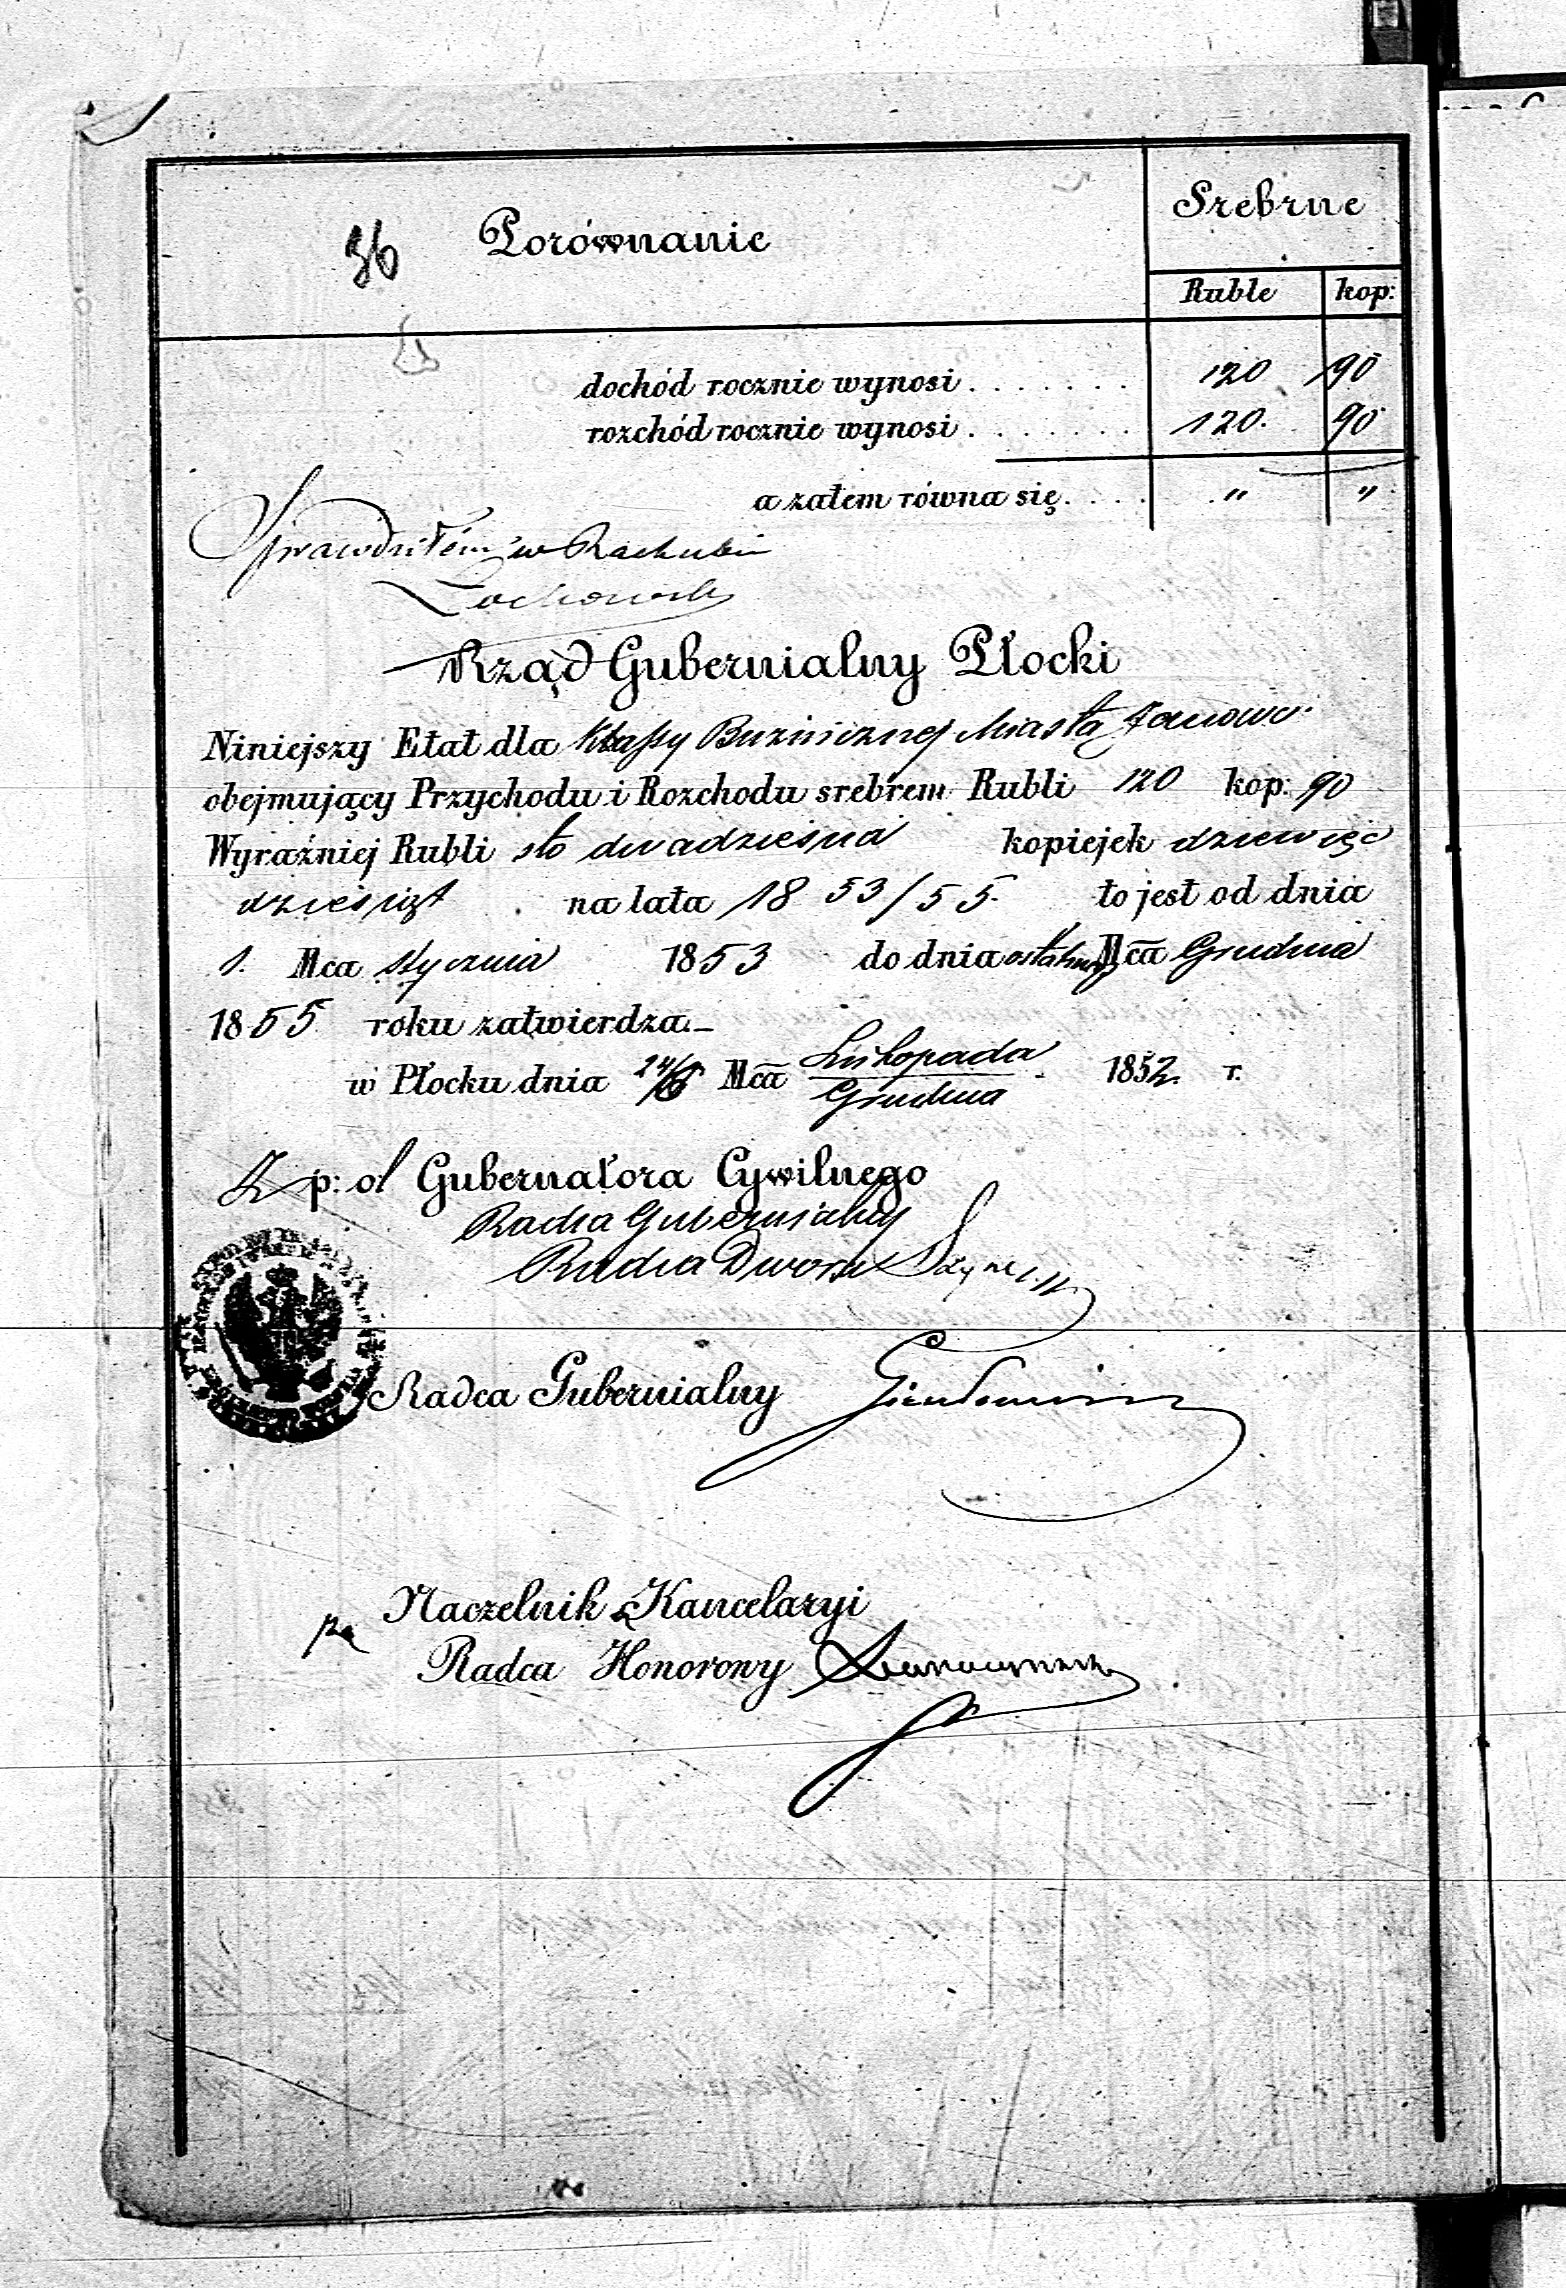 Srebrne
36 Porównanie
Ruble kop:
dochód rocznie wynosi . . . . . . . 120 90
rozchód rocznie wynosi . . . . . . . 120. 90
a zatem równa się. . . . " "
Sprawdziłem w Rachubie
Rząd Gubernialny Płocki
Niniejszy Etat dla Klassy Buźniczney Miasta Janowo
obejmujący Przychodu i Rozchodu srebrem Rubli 120 kop: 90
Wyraźniej Rubli sto dwadzieścia kopiejek dziewięć
dziesiąt na lata 1853/55. to jest od dnia
1. Mca Stycznia 1853 do dnia ostatniego Mca Grudnia
1855 roku zatwierdza.
w Płocku dnia 24/6 Mca Listopada/Grudnia 1852. r.
Z p: o! Gubernatora Cywilnego
Radca Gubernialny
Radca Dworu
Radca Gubernialny
Naczelnik Kancelaryi
Radca Honorowy